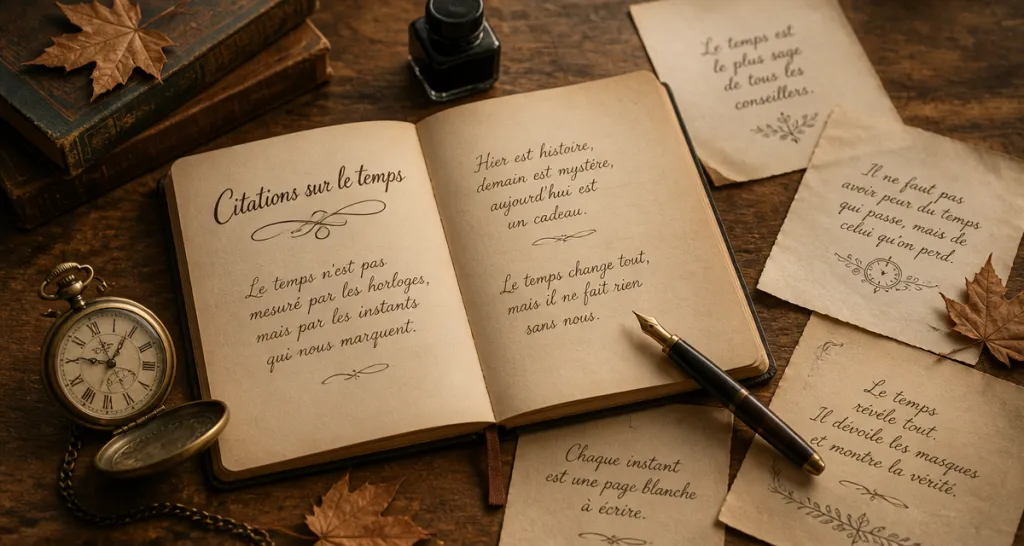 Citations sur le temps
Le temps n'est pas
mesuré par les horloges,
mais par les instants
qui nous marquent.
Hier est histoire,
demain est mystére,
aujourd'hui est
un cadeau.
Le temps change tout,
mais il ne fait rien
sans nous.
Le temps est
le plus sage
de tous les
conseillers.
Il ne faut pas
avoir peur du temps
qui passe, mais de
celui qu'on perd.
Le temps
révèle tout.
Il dévoile les masques
et montre la vérité.
Chaque instant
est une page blanche
à écrire.